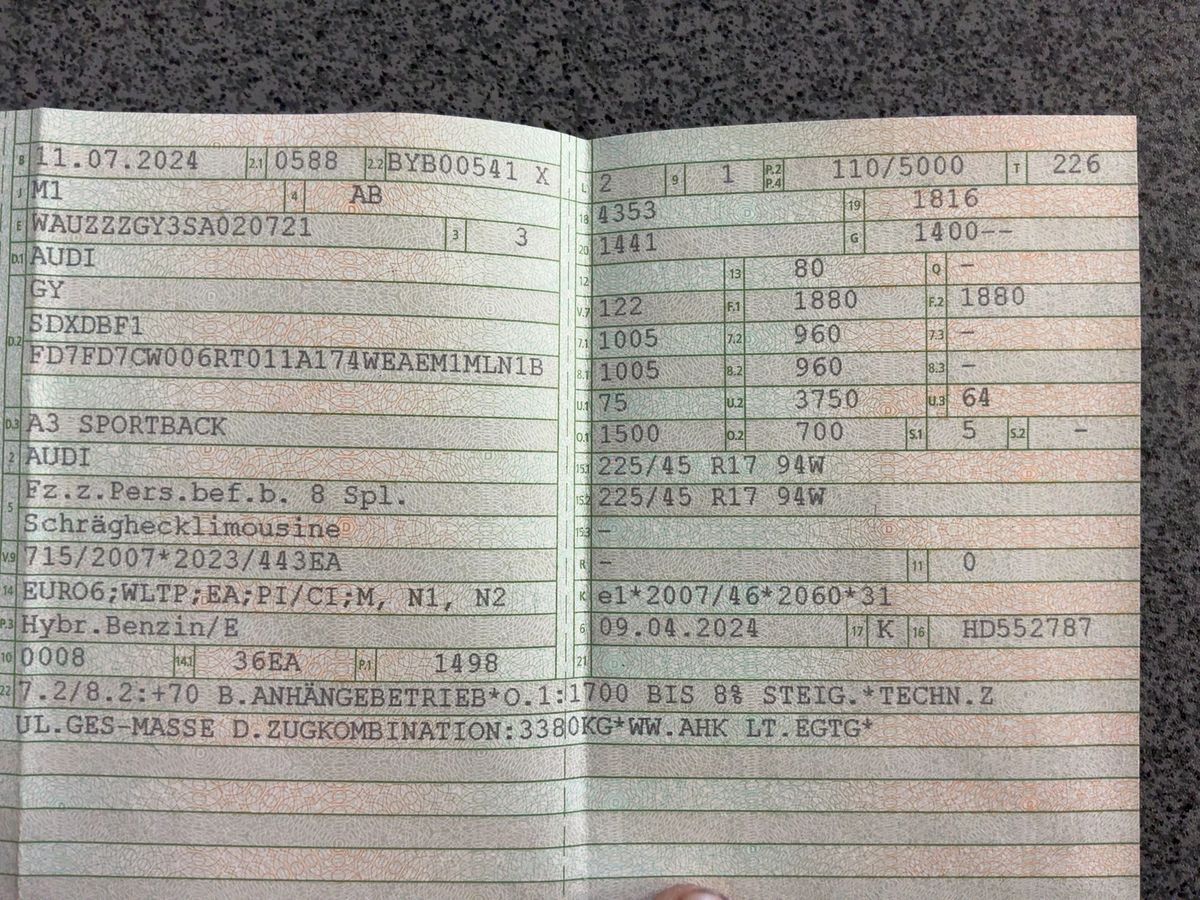 B 11.07.2024 2.1 0588 2.2 BYB00541 X
J M1 4 AB
E WAUZZZGY3SA020721 3 3
D.1 AUDI
GY
D.2 SDXDBF1
FD7FD7CW006RT011A174WEAEM1MLN1B
D.3 A3 SPORTBACK
2 AUDI
5 Fz.z.Pers.bef.b. 8 Spl.
Schräghecklimousine
V.9 715/2007*2023/443EA
14 EURO6;WLTP;EA;PI/CI;M, N1, N2
P.3 Hybr.Benzin/E
10 0008 14.1 36EA P.1 1498
L 2 9 1 P.2 P.4 110/5000 T 226
18 4353 19 1816
20 1441 G 1400--
12 13 80 Q -
V.7 122 F.1 1880 F.2 1880
7.1 1005 7.2 960 7.3 -
8.1 1005 8.2 960 8.3 -
U.1 75 U.2 3750 U.3 64
O.1 1500 O.2 700 S.1 5 S.2 -
15.1 225/45 R17 94W
15.2 225/45 R17 94W
15.3 -
R - 11 0
K e1*2007/46*2060*31
6 09.04.2024 17 K 16 HD552787
21
22 7.2/8.2:+70 B.ANHÄNGEBETRIEB*O.1:1700 BIS 8% STEIG.*TECHN.Z
UL.GES-MASSE D.ZUGKOMBINATION:3380KG*WW.AHK LT.EGTG*